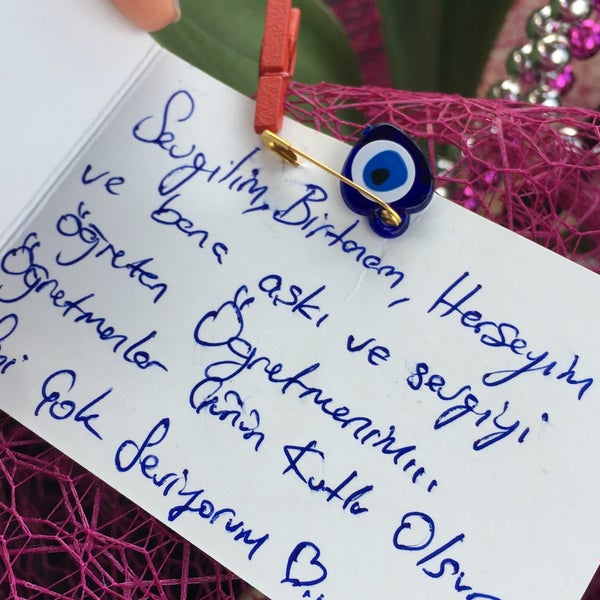 Sevgilim, Birtanem, Herşeyim
ve bana aşkı ve sevgiyi
Öğreten Öğretmenim...
Öğretmenler Günün Kutlu Olsun
Seni Çok Seviyorum